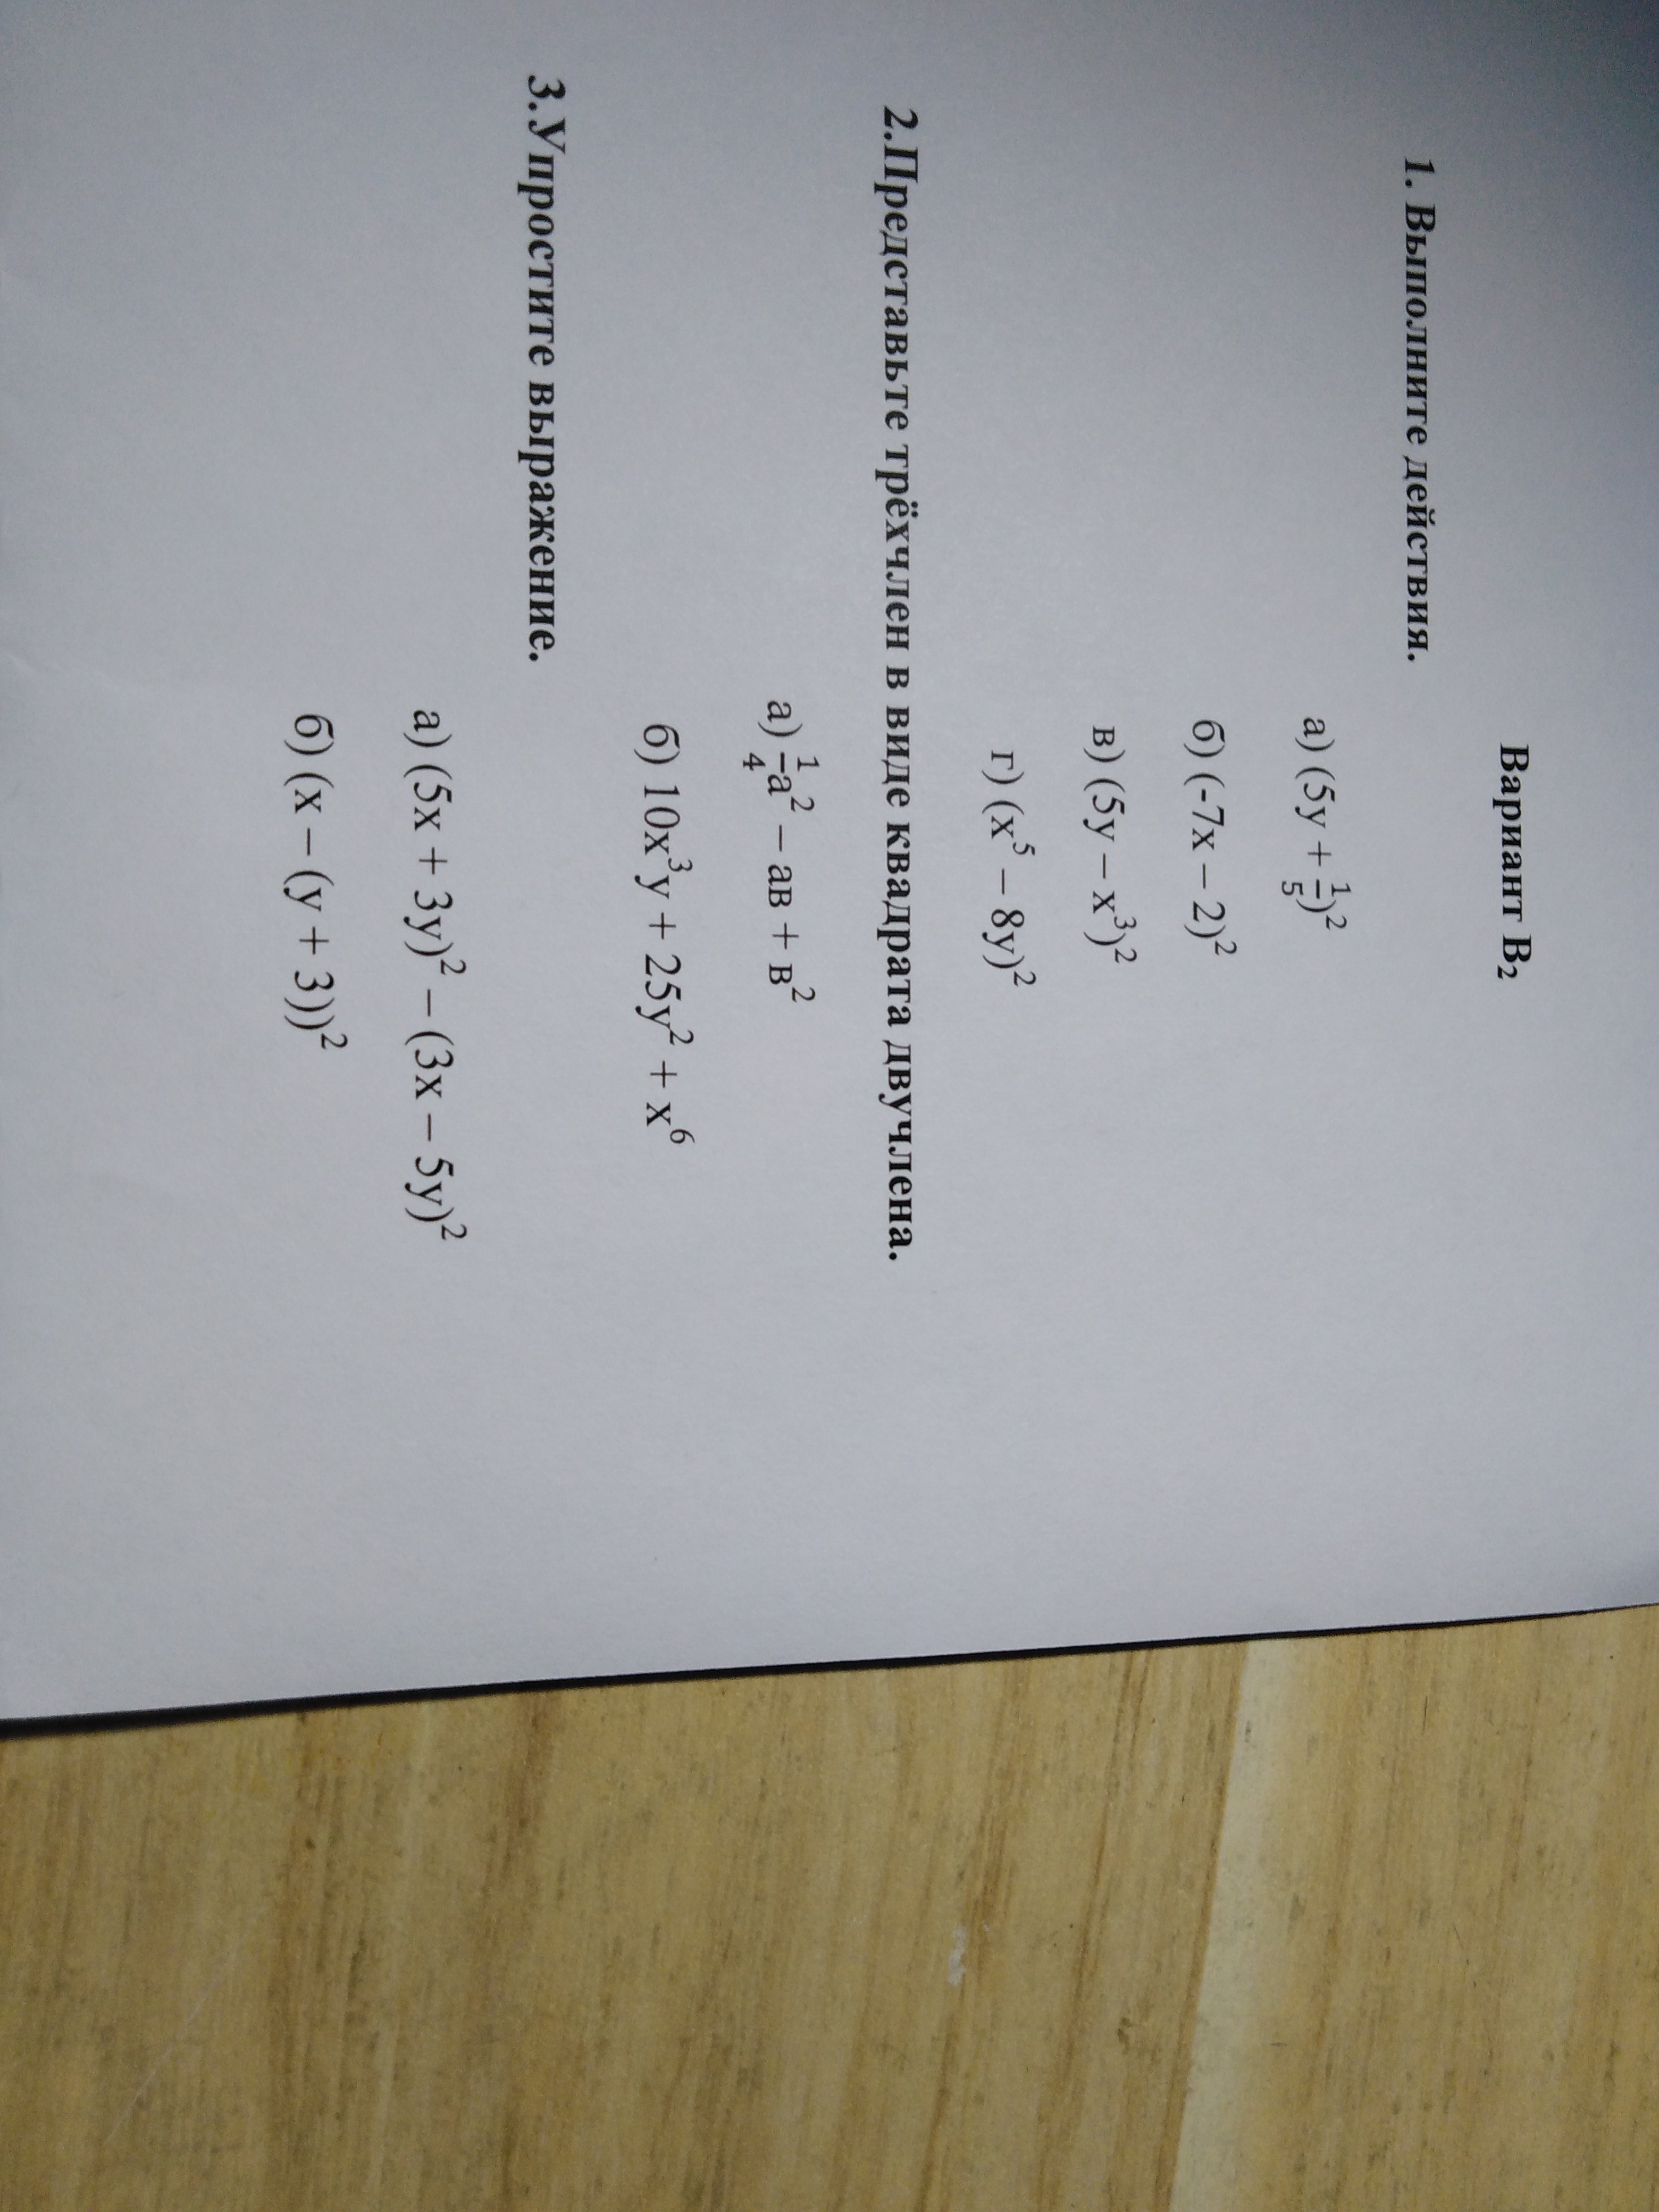 Вариант В₂
1. Выполните действия.
а) (5у + 1/5)²
б) (-7х – 2)²
в) (5у – х³)²
г) (х⁵ – 8у)²
2.Представьте трёхчлен в виде квадрата двучлена.
а) 1/4а² – ав + в²
б) 10х³у + 25у² + х⁶
3.Упростите выражение.
а) (5х + 3у)² – (3х – 5у)²
б) (х – (у + 3))²